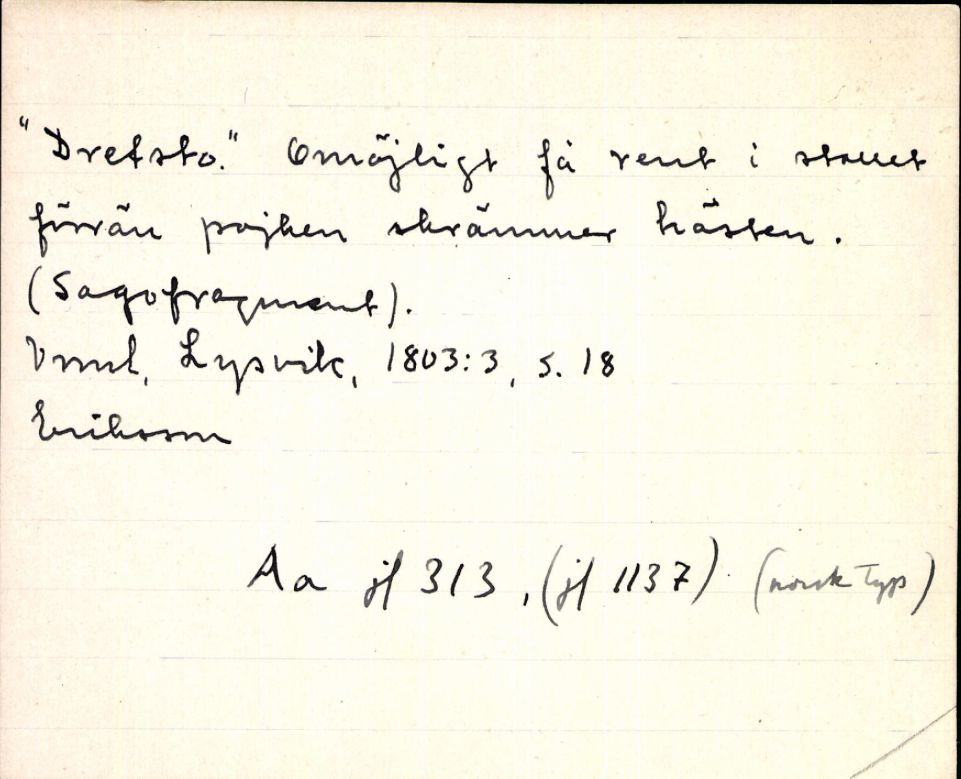 "Dretsto." Omöjligt få rent i stallet
förrän pojken skrämmer hästen.
(Sagofragment).
Vrml, Lysvik, 1803:3, s. 18
Eriksson
Aa jf 313, (jf 1137) (norsk typ)